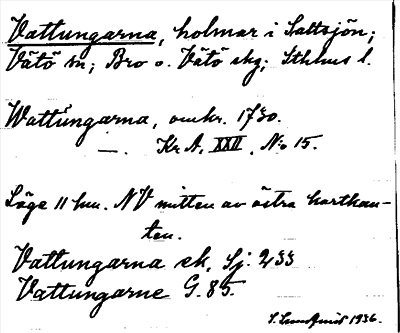 Vattungarna, holmar i Saltsjön;
Vätö sn; Bro o. Vätö skg; Sthlms l.
Wattungarna, omkr. 1730.
— . Kr A. XXII, No 15.
Läge 11 hm. NV mitten av östra kartkan-
ten.
Vattungarna ek, Sj. 233
Vattungarne G. 85.
S. Lundqvist 1936.